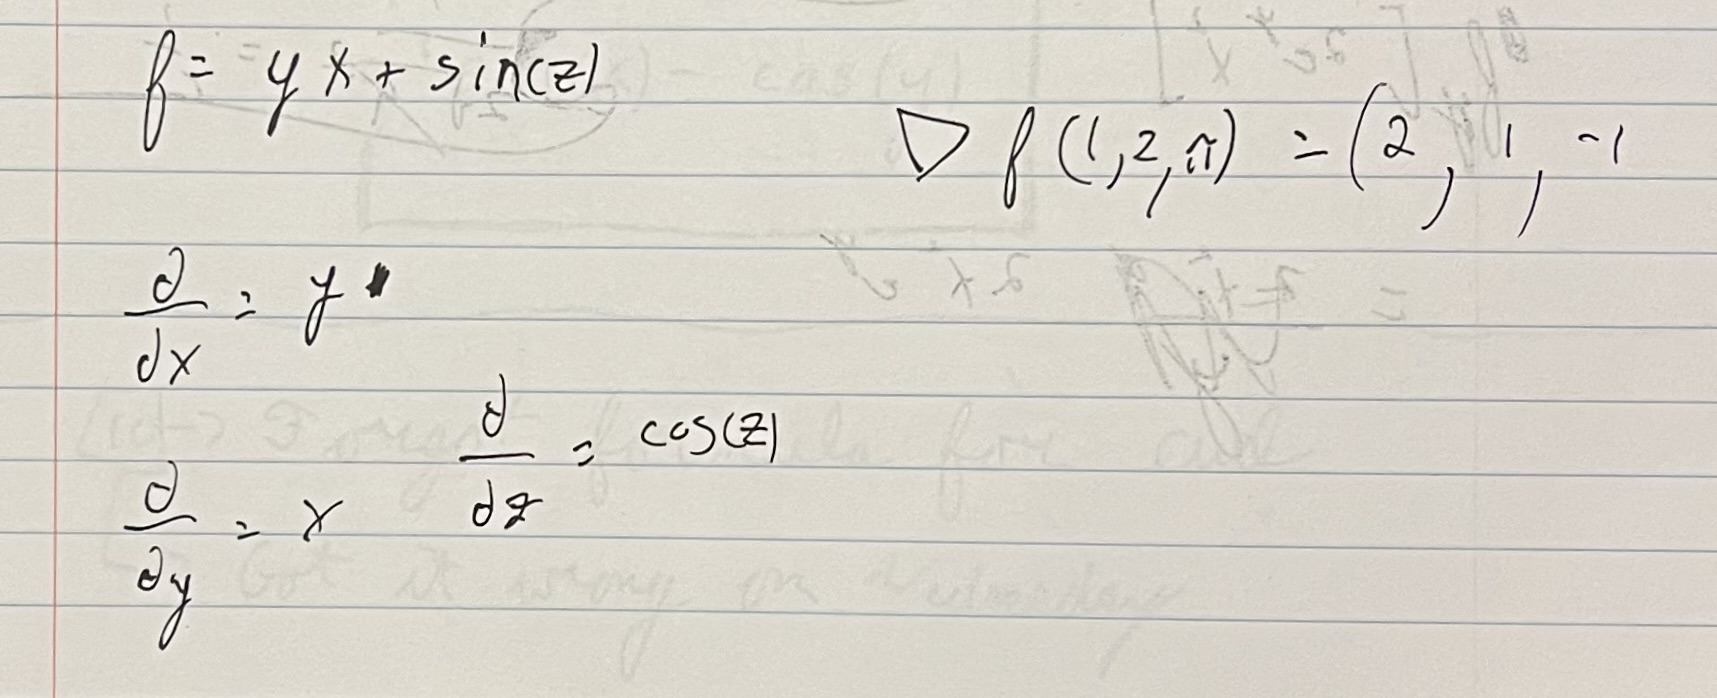 f = yx + sin(z)
∇ f(1,2,π) = (2, 1, -1
∂/dx = y
d/dz = cos(z)
∂/∂y = x